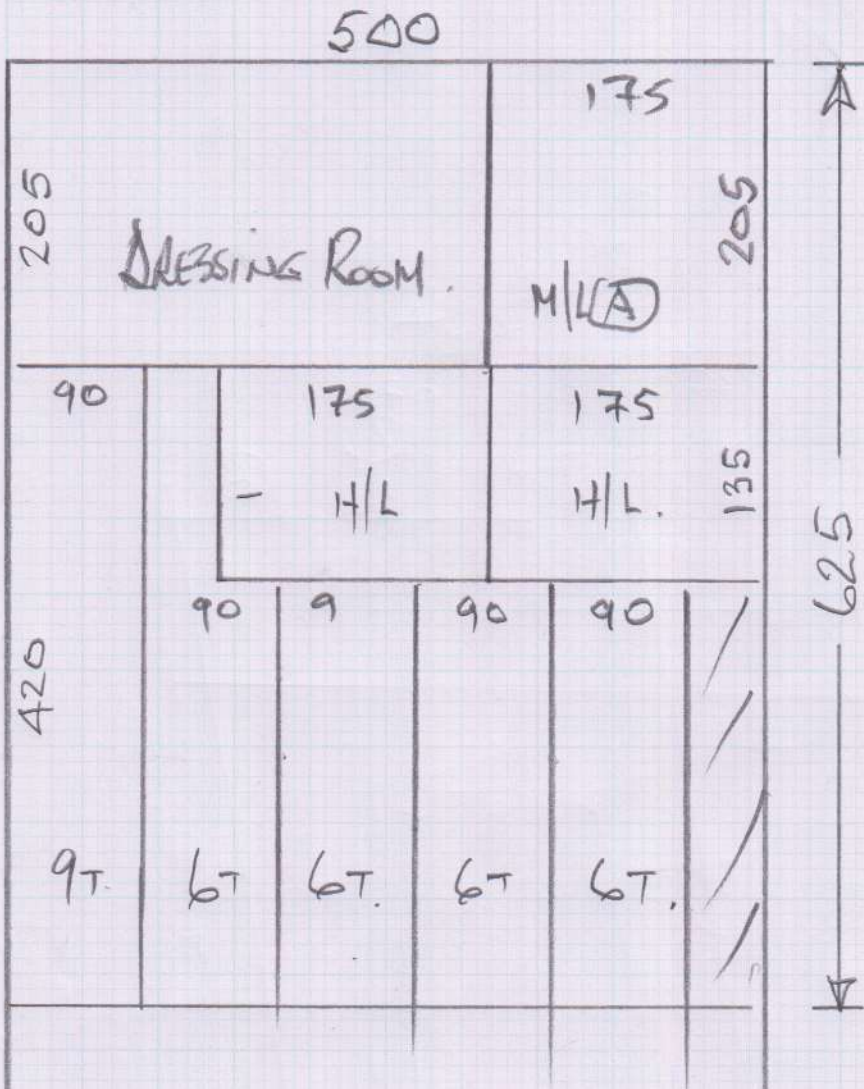 500
175
205
205
DRESSING ROOM.
M/L A
90
175
175
- H/L
H/L.
135
625
90
9
90
90
420
9T.
6T
6T.
6T
6T.